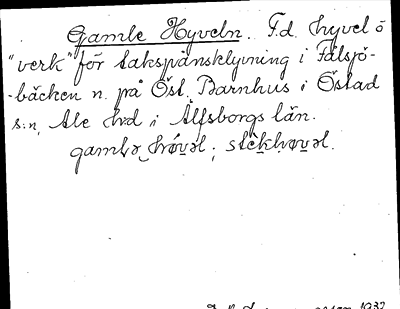 Gamle Hyveln. F.d. hyvel o
"verk" för takspånsklyvning i Fälsjö-
-bäcken n. på Öst. Barnhus i Östad
s:n, Ale hd i Älfsborgs län.
1932